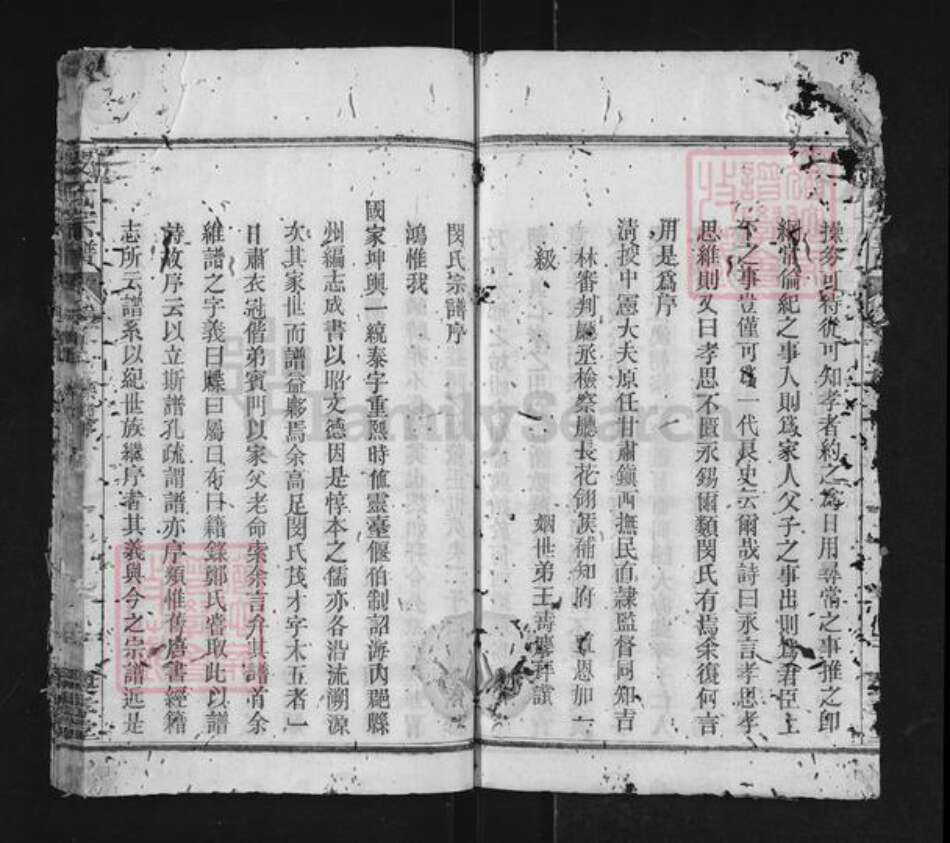 操券可待從可知孝者約之爲日用尋常之事推之卽
綱常倫紀之事人則爲家人父子之事出則爲君臣上
下之事豈僅可爲一代良史云爾哉詩曰永言孝思孝
思維則又曰孝思不匱永錫爾類閔氏有焉余復何言
用是爲序
清授中憲大夫原任甘肅鎭西撫民直隸監督同知吉
林審判廳丞檢察廳長花翎候補知府 覃恩加一
級 姻世弟王 拜譔
閔氏宗譜序
鴻惟我
國家坤輿一統泰宇重熙時値靈臺偃伯制詔海內郡縣
州編志成書以昭文德因是惇本之儒亦各沿流溯源
次其家世而譜益夥焉余高足閔氏茂才字木五者一
日肅衣冠偕弟賓門以家父老命索余言弁其譜首余
維譜之字義曰牒曰屬曰布曰籍錄鄭氏嘗取此以譜
詩故序云以立斯譜孔疏謂譜亦序類惟舊唐書經籍
志所云譜系以紀世族繼序者其義與今之宗譜近是
宗譜
FamilySearch